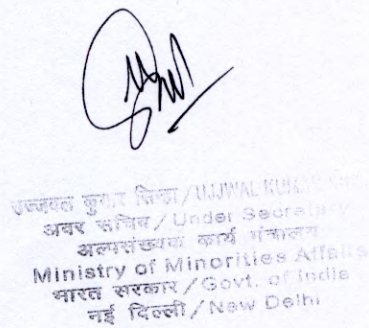 उज्जवल कुमार सिन्हा/UJJWAL KUMAR
अवर सचिव/Under Secretary
अल्पसंख्यक कार्य मंत्रालय
Ministry of Minorities Affairs
भारत सरकार/Govt. of India
नई दिल्ली/New Delhi